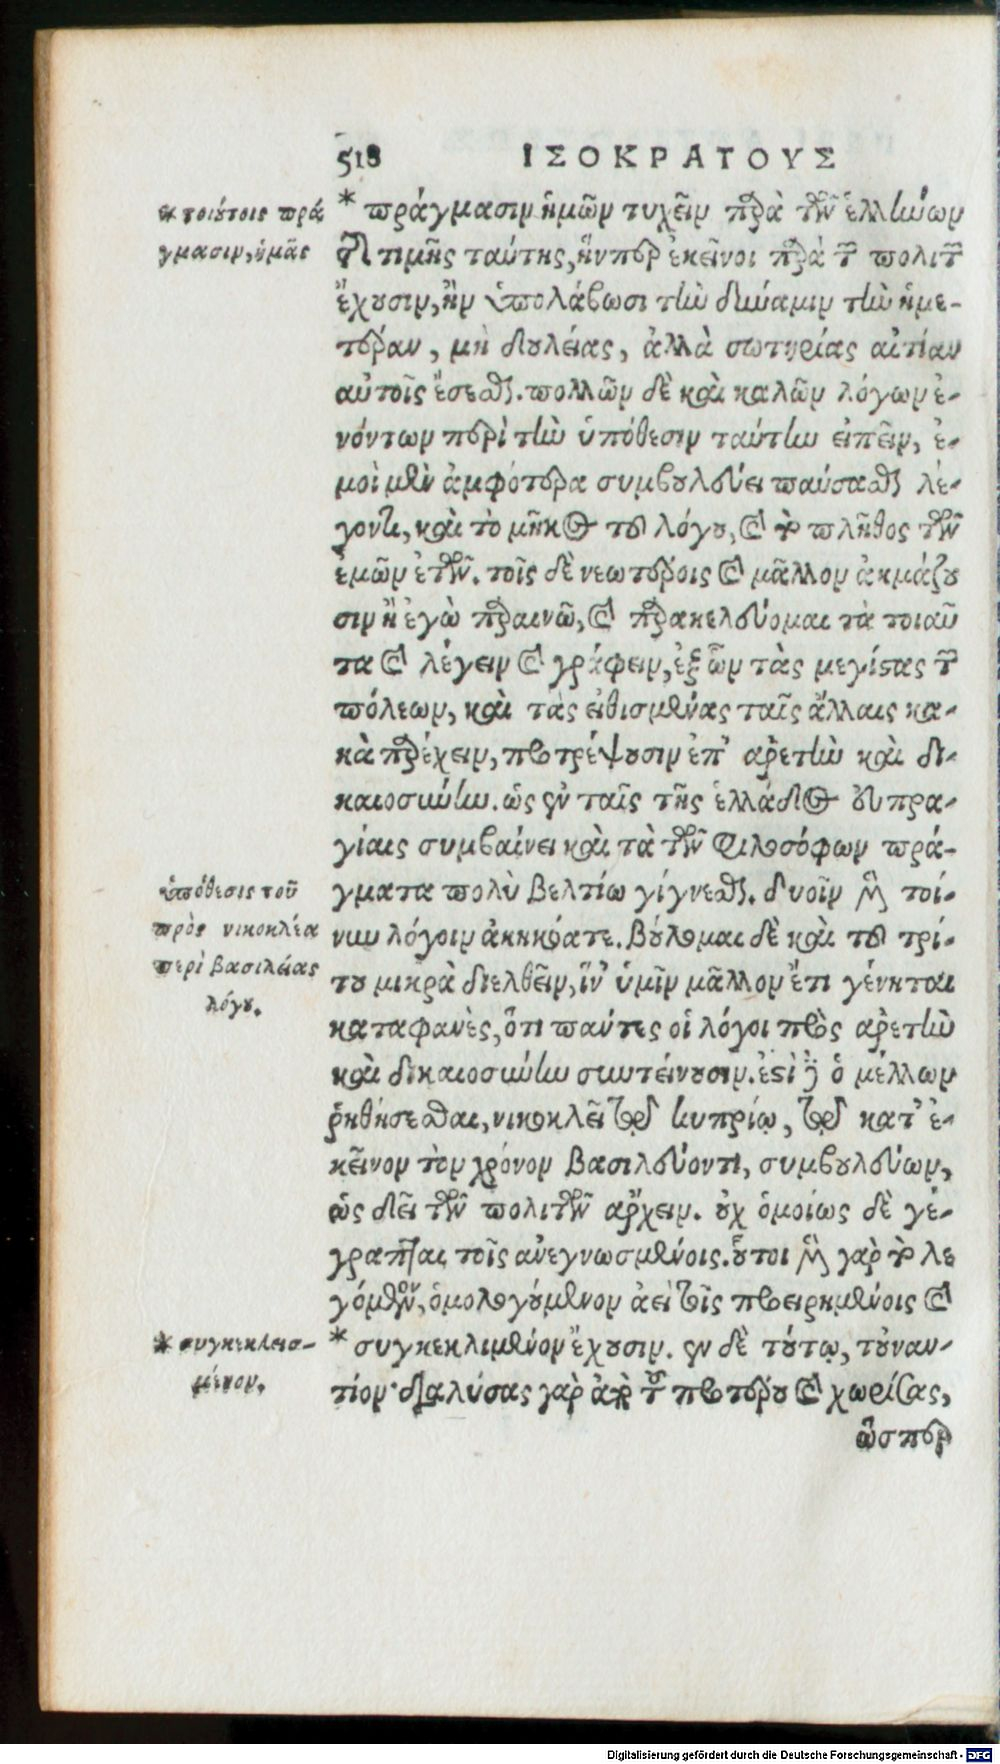 518 ΙΣΟΚΡΑΤΟΥΣ
* πράγμασιν ἡμῶν τυχεῖν παρὰ τῶν ἑλλήνων
τῆς τιμῆς ταύτης, ἥνπερ ἐκεῖνοι παρὰ τῶν πολιτῶν
ἔχουσιν, ἢν ὑπολάβωσι τὴν δύναμιν τὴν ἡμε-
τέραν, μὴ δουλείας, ἀλλὰ σωτηρίας αἰτίαν
αὐτοῖς ἔσεσθαι. πολλῶν δὲ καὶ καλῶν λόγων ἐ-
νόντων περὶ τὴν ὑπόθεσιν ταύτην εἰπεῖν, ἐ-
μοὶ μὲν ἀμφότερα συμβουλεύει παύσασθαι λέ-
γοντι, καὶ τὸ μῆκος τοῦ λόγου, καὶ τὸ πλῆθος τῶν
ἐμῶν ἐτῶν. τοῖς δὲ νεωτέροις καὶ μᾶλλον ἀκμάζου
σιν ἢ ἐγὼ παραινῶ, καὶ παρακελεύομαι τὰ τοιαῦ
τα καὶ λέγειν καὶ γράφειν, ἐξ ὧν τὰς μεγίστας τῶν
πόλεων, καὶ τὰς εἰθισμένας ταῖς ἄλλαις κα-
κὰ παρέχειν, προτρέψουσιν ἐπ' ἀρετὴν καὶ δι-
καιοσύνην. ὡς ἐν ταῖς τῆς ἑλλάδος εὐπρα-
γίαις συμβαίνει καὶ τὰ τῶν φιλοσόφων πρά-
γματα πολὺ βελτίω γίγνεσθαι. δυοῖν μὲν τοί-
νυν λόγοιν ἀκηκόατε. βούλομαι δὲ καὶ τοῦ τρί-
του μικρὰ διελθεῖν, ἵν' ὑμῖν μᾶλλον ἔτι γένηται
καταφανὲς, ὅτι πάντες οἱ λόγοι πρὸς ἀρετὴν
καὶ δικαιοσύνην συντείνουσιν. ἐστὶ δὲ ὁ μέλλων
ῥηθήσεσθαι, νικοκλεῖ τῷ κυπρίῳ, τῷ κατ' ἐ-
κεῖνον τὸν χρόνον βασιλεύοντι, συμβουλεύων,
ὡς δεῖ τῶν πολιτῶν ἄρχειν. οὐχ ὁμοίως δὲ γέ-
γραπται τοῖς ἀνεγνωσμένοις. οὗτοι μὲν γὰρ τὸ λε
γόμενον, ὁμολογούμενον ἀεὶ τοῖς προειρημένοις καὶ
* συγκεκλιμένον ἔχουσιν. ἐν δὲ τούτῳ, τοὐναν-
τίον· διαλύσας γὰρ ἀπὸ τοῦ προτέρου καὶ χωρίσας,
ὥσπερ
* τοιούτοις πρά
γμασιν, ὑμᾶς
ὑπόθεσις τοῦ
πρὸς νικοκλέα
περὶ βασιλείας
λόγου.
* συγκεκλεισ-
μένον.
Digitalisierung gefördert durch die Deutsche Forschungsgemeinschaft - DFG